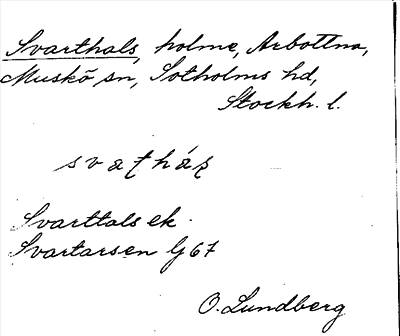 Svarthals, holme, Arbottna,
Muskö sn, Sotholms hd,
Stockh. l.
Svarttals ek.
Svartarsen Gj 67
O. Lundberg